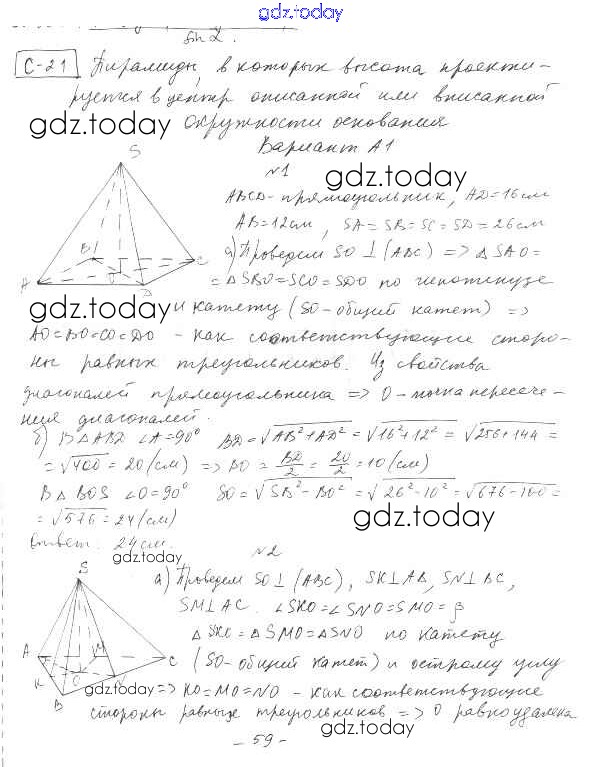 gdz.today
sin 2.
С-21 Пирамиды, в которых высота проекти-
руется в центр описанной или вписанной
gdz.today окружности основания
Вариант А1
№1 gdz.today
S
ABCD - прямоугольник, AD=16см
AB=12см, SA=SB=SC=SD=26см
а) Проведем SO⊥(ABC) => △SAO=
B C
=△SBO=SCO=SDO по гипотенузе
A O D
gdz.today и катету (SO-общий катет) =>
AO=BO=CO=DO - как соответствующие сторо-
ны равных треугольников. Из свойства
диагоналей прямоугольника => O-точка пересече-
ния диагоналей.
б) В △ABD ∠A=90° BD=√AB²+AD² = √16²+12² = √256+144 =
= √400 = 20(см) => BO = BD/2 = 20/2 = 10(см)
В △BOS ∠O=90° SO=√SB²-BO² = √26²-10² = √676-100 =
= √576 = 24(см)
gdz.today
Ответ: 24см.
gdz.today
№2
S
а) Проведем SO⊥(ABC), SK⊥AB, SN⊥BC,
SM⊥AC. ∠SKO=∠SNO=SMO=β
△SKO=△SMO=△SNO по катету
A M C
(SO-общий катет) и острому углу
K O N
gdz.today => KO=MO=NO - как соответствующие
B
стороны равных треугольников => O равноудалена
gdz.today
- 59 -